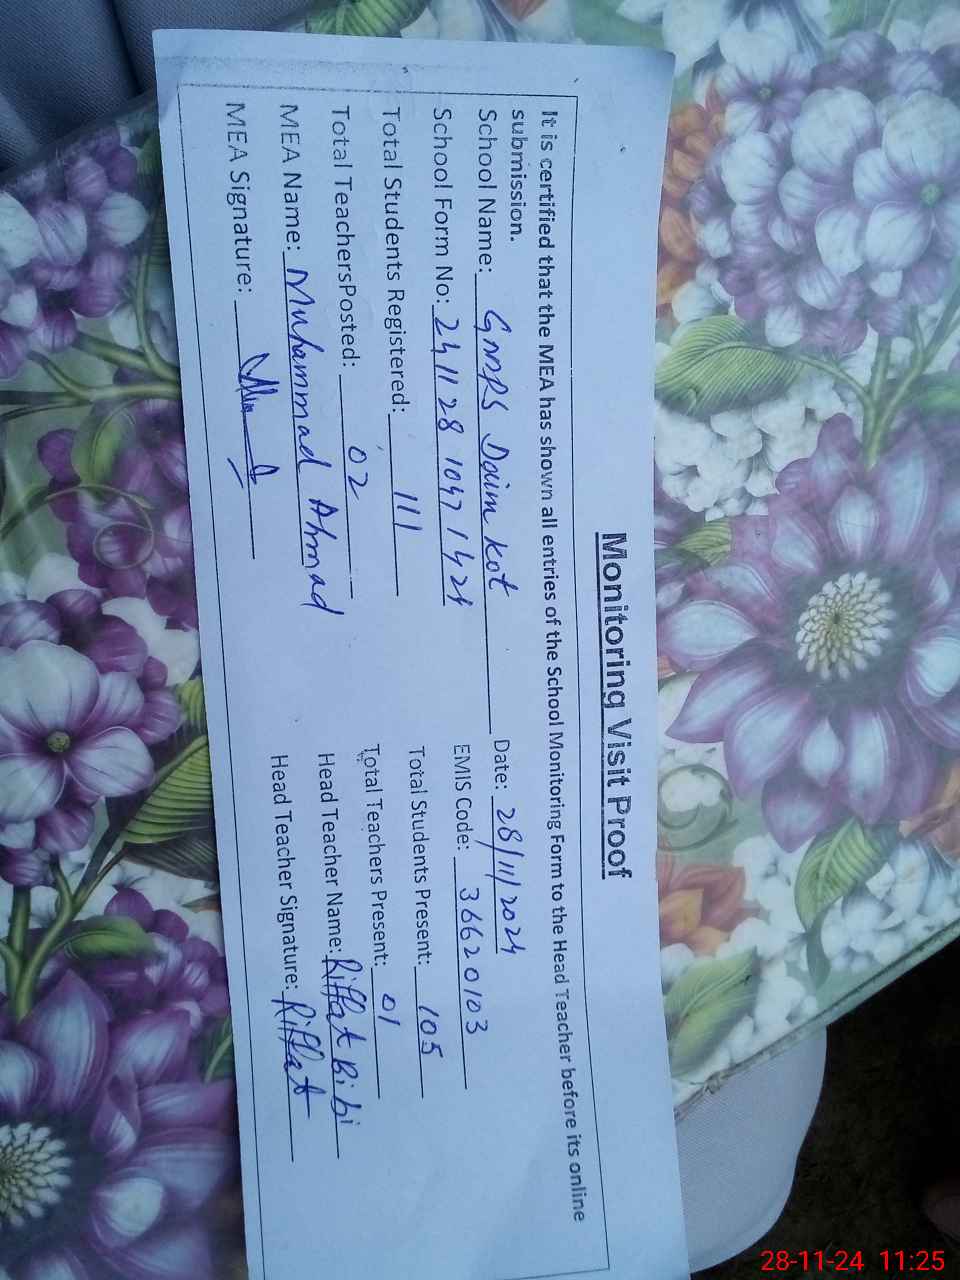 Monitoring Visit Proof
It is certified that the MEA has shown all entries of the School Monitoring Form to the Head Teacher before its online
submission.
School Name: GMPS Daim Kot Date: 28/11/2024
School Form No: 241128 1047 1424 EMIS Code: 36620103
Total Students Registered: 111 Total Students Present: 105
Total TeachersPosted: 02 Total Teachers Present: 01
MEA Name: Muhammad Ahmad Head Teacher Name: Riffat Bibi
MEA Signature: Head Teacher Signature: Riffat
28-11-24 11:25